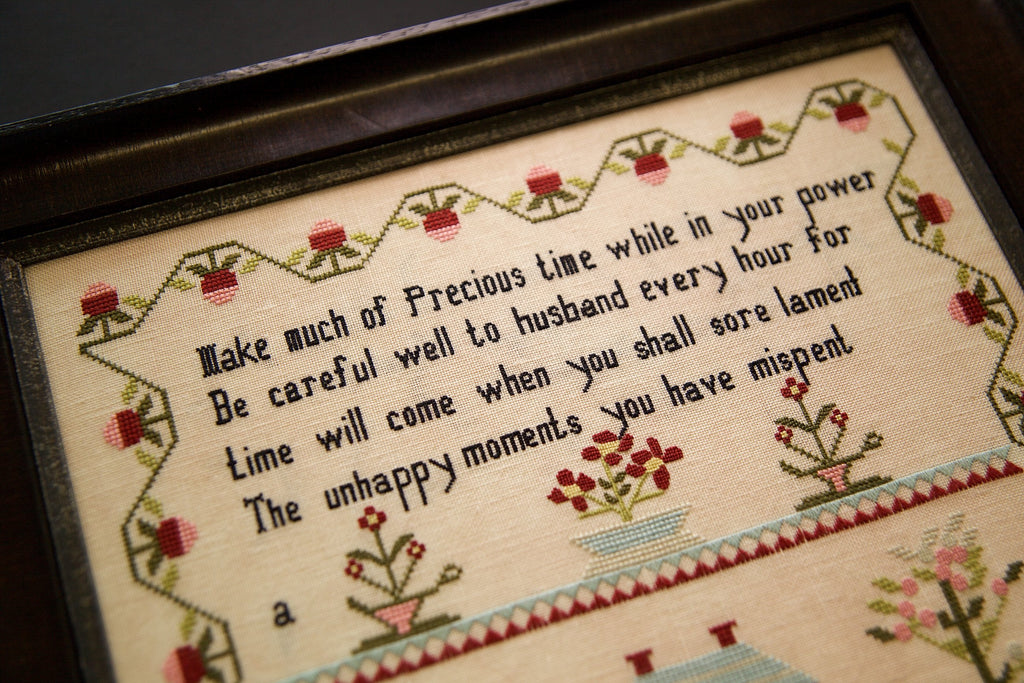 Make much of Precious time while in your power
Be careful well to husband every hour for
time will come when you shall sore lament
The unhappy moments you have mispent
a